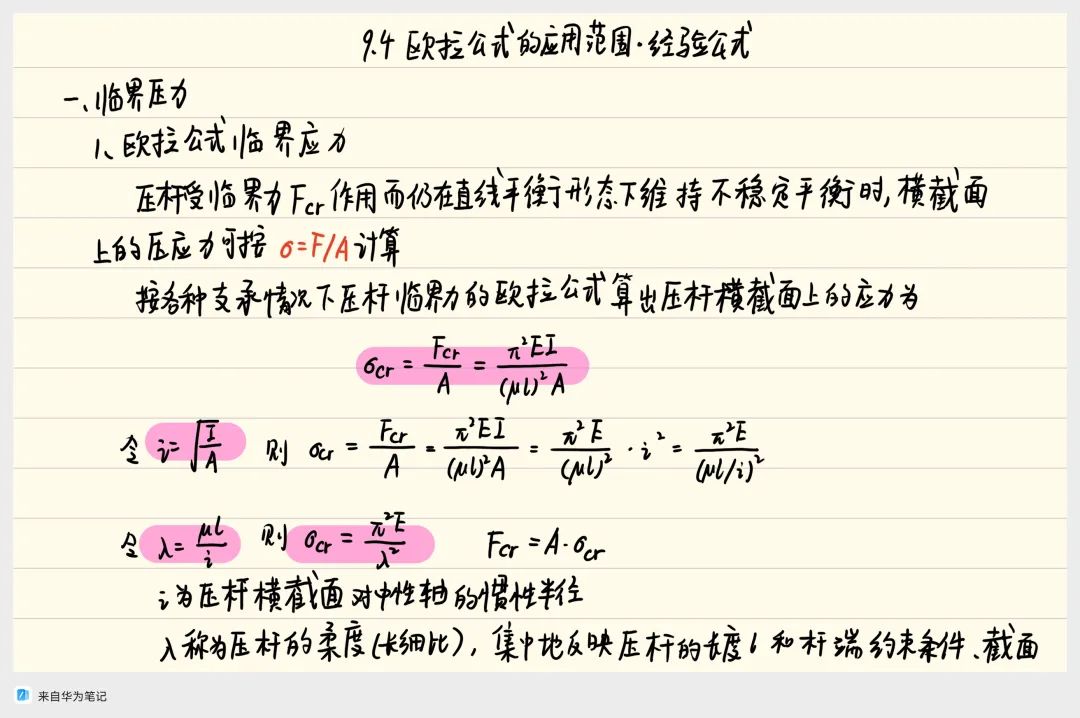 9.4 欧拉公式的应用范围·经验公式
一、临界压力
1、欧拉公式临界应力
压杆受临界力Fcr作用而仍在直线平衡形态下维持不稳定平衡时,横截面
上的压应力可按 σ=F/A计算
按各种支承情况下压杆临界力的欧拉公式算出压杆横截面上的应力为
σcr = Fcr/A = π²EI/(μl)²A
令 i=√(I/A) 则 σcr = Fcr/A = π²EI/(μl)²A = π²E/(μl)² · i² = π²E/(μl/i)²
令 λ= μl/i 则 σcr = π²E/λ² Fcr =A·σcr
i为压杆横截面对中性轴的惯性半径
λ称为压杆的柔度(长细比),集中地反映压杆的长度l和杆端约束条件、截面
来自华为笔记